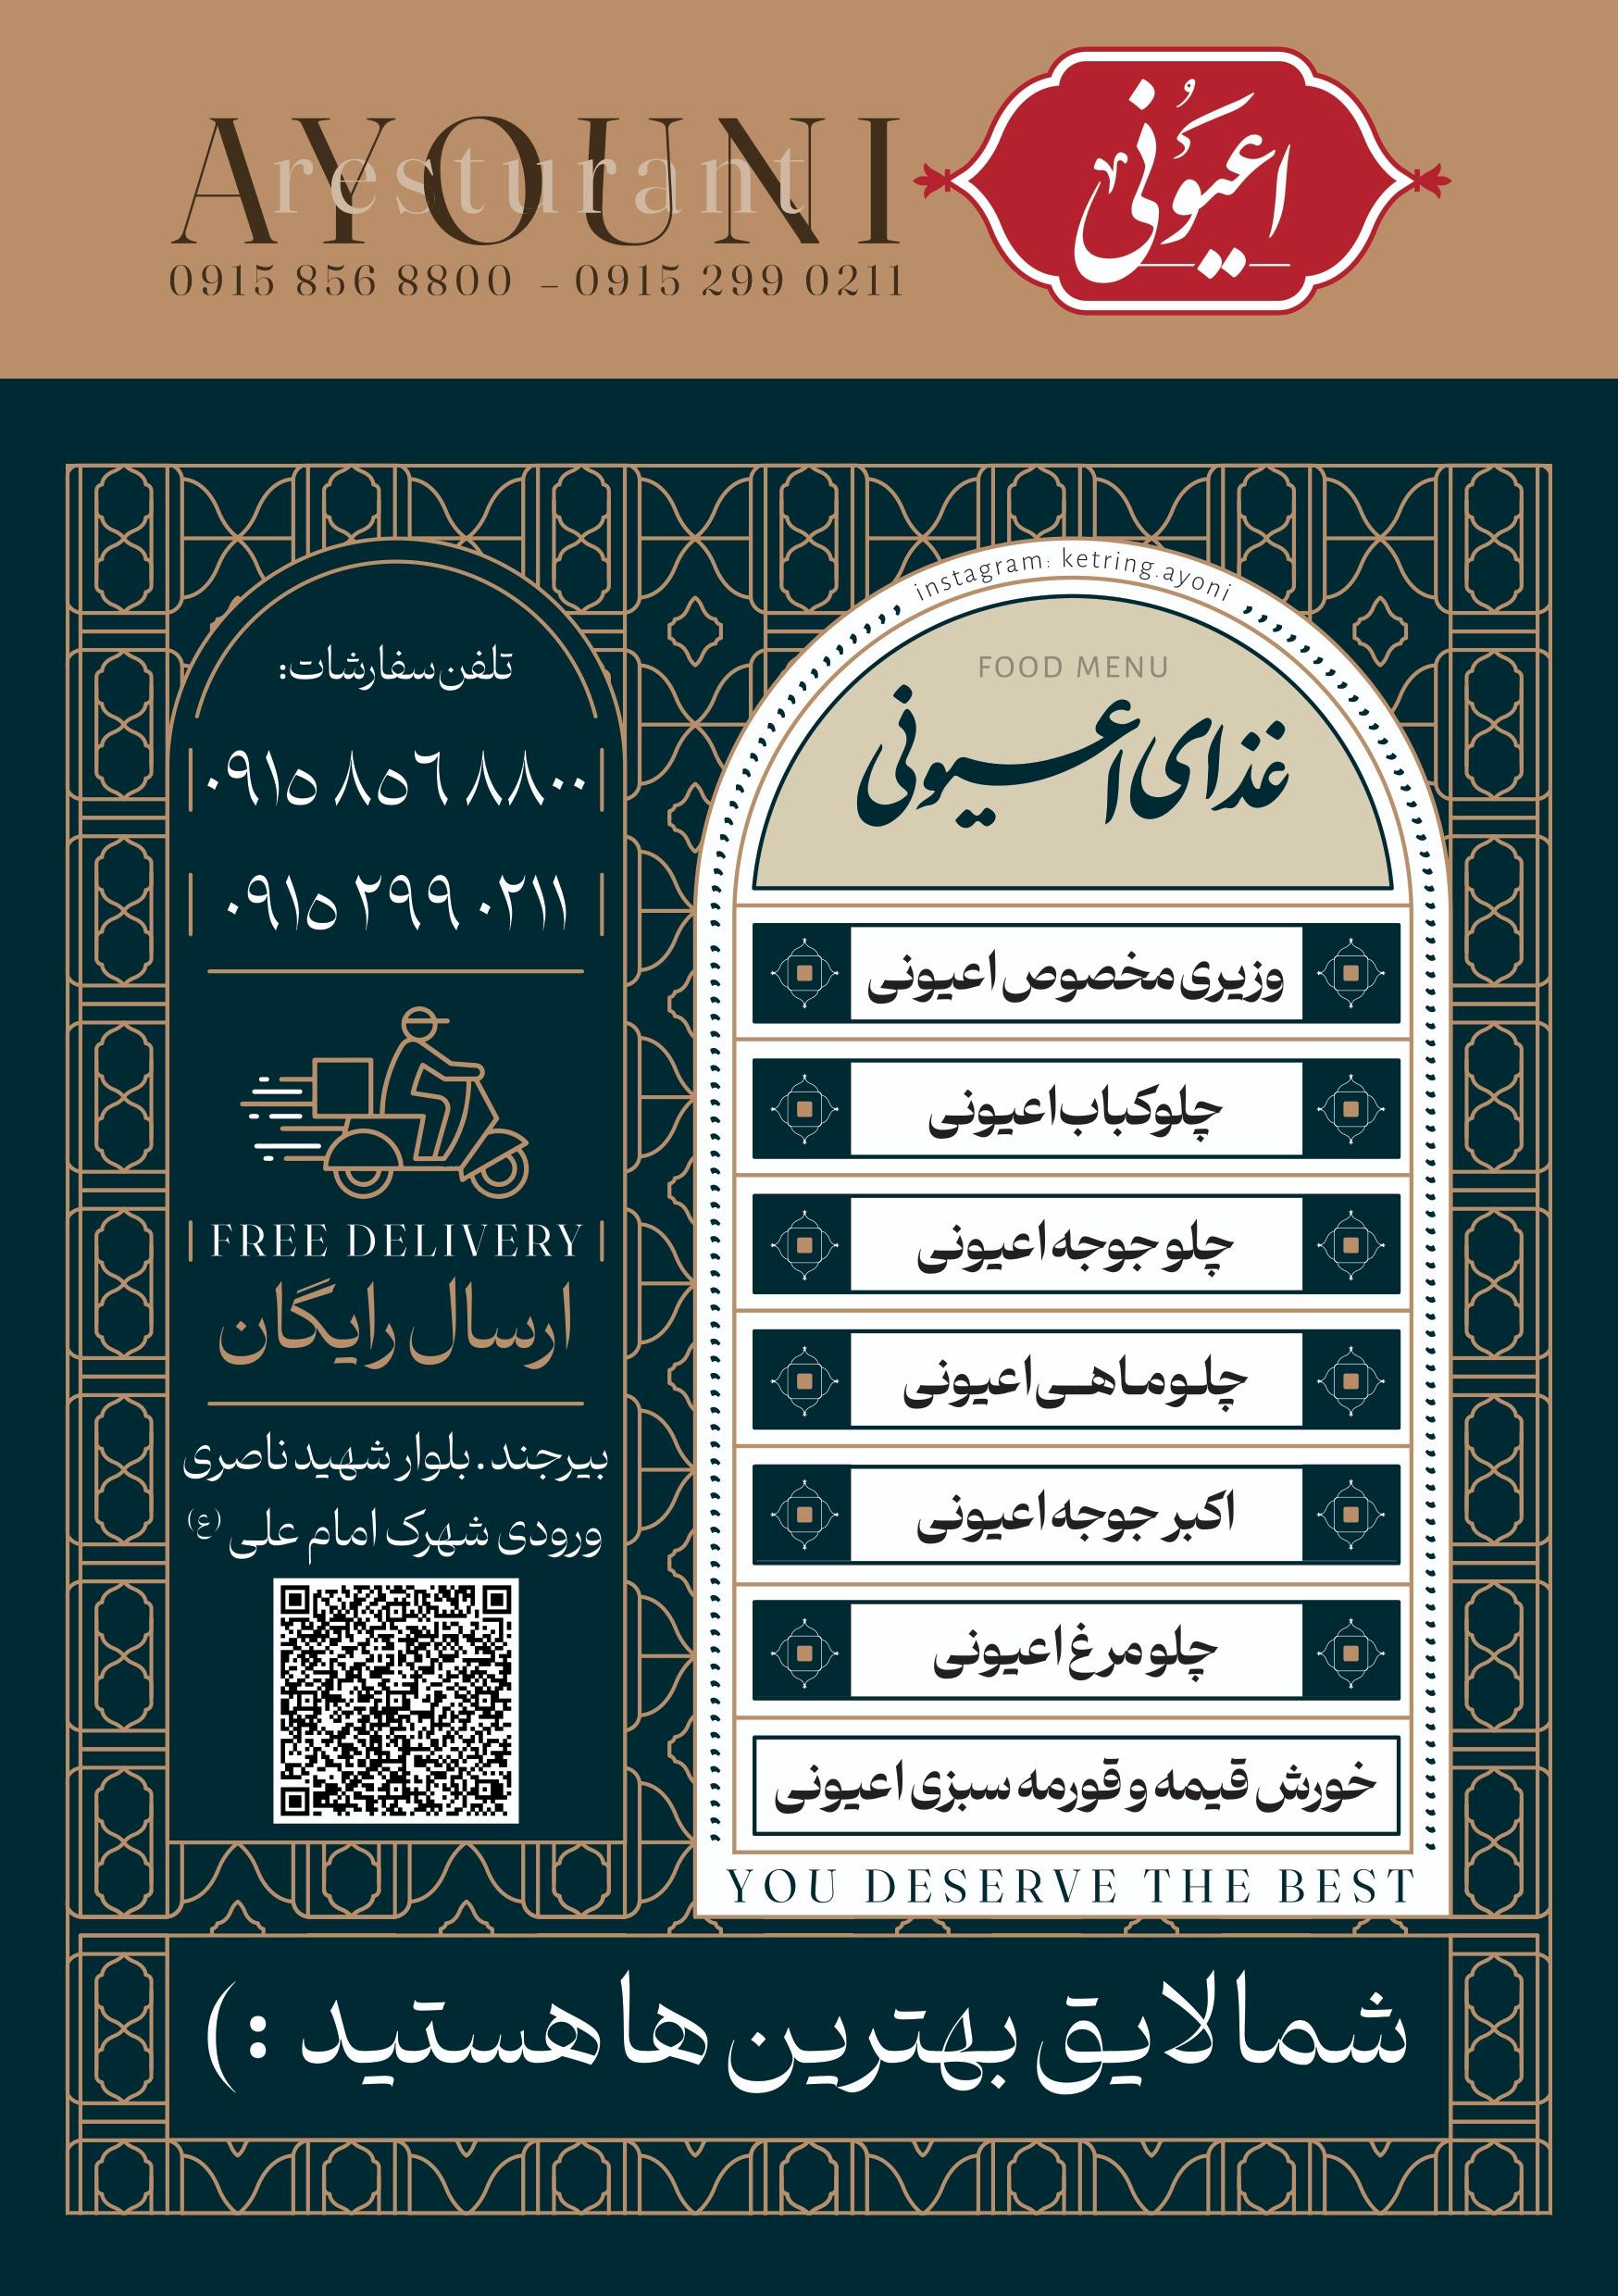 AYOUNI
resturant
0915 856 8800 - 0915 299 0211
اعیونی
instagram: ketring.ayoni
FOOD MENU
غذای اعیونی
وزیری مخصوص اعیونی
چلوکباب اعیونی
چلو جوجه اعیونی
چلوماهی اعیونی
اکبر جوجه اعیونی
چلو مرغ اعیونی
خورش قیمه و قورمه سبزی اعیونی
YOU DESERVE THE BEST
تلفن سفارشات:
۰۹۱۵ ۸۵۶ ۸۸۰۰
۰۹۱۵ ۲۹۹ ۰۲۱۱
FREE DELIVERY
ارسال رایگان
بیرجند. بلوار شهید ناصری
ورودی شهرک امام علی (ع)
شما لایق بهترین ها هستید :)